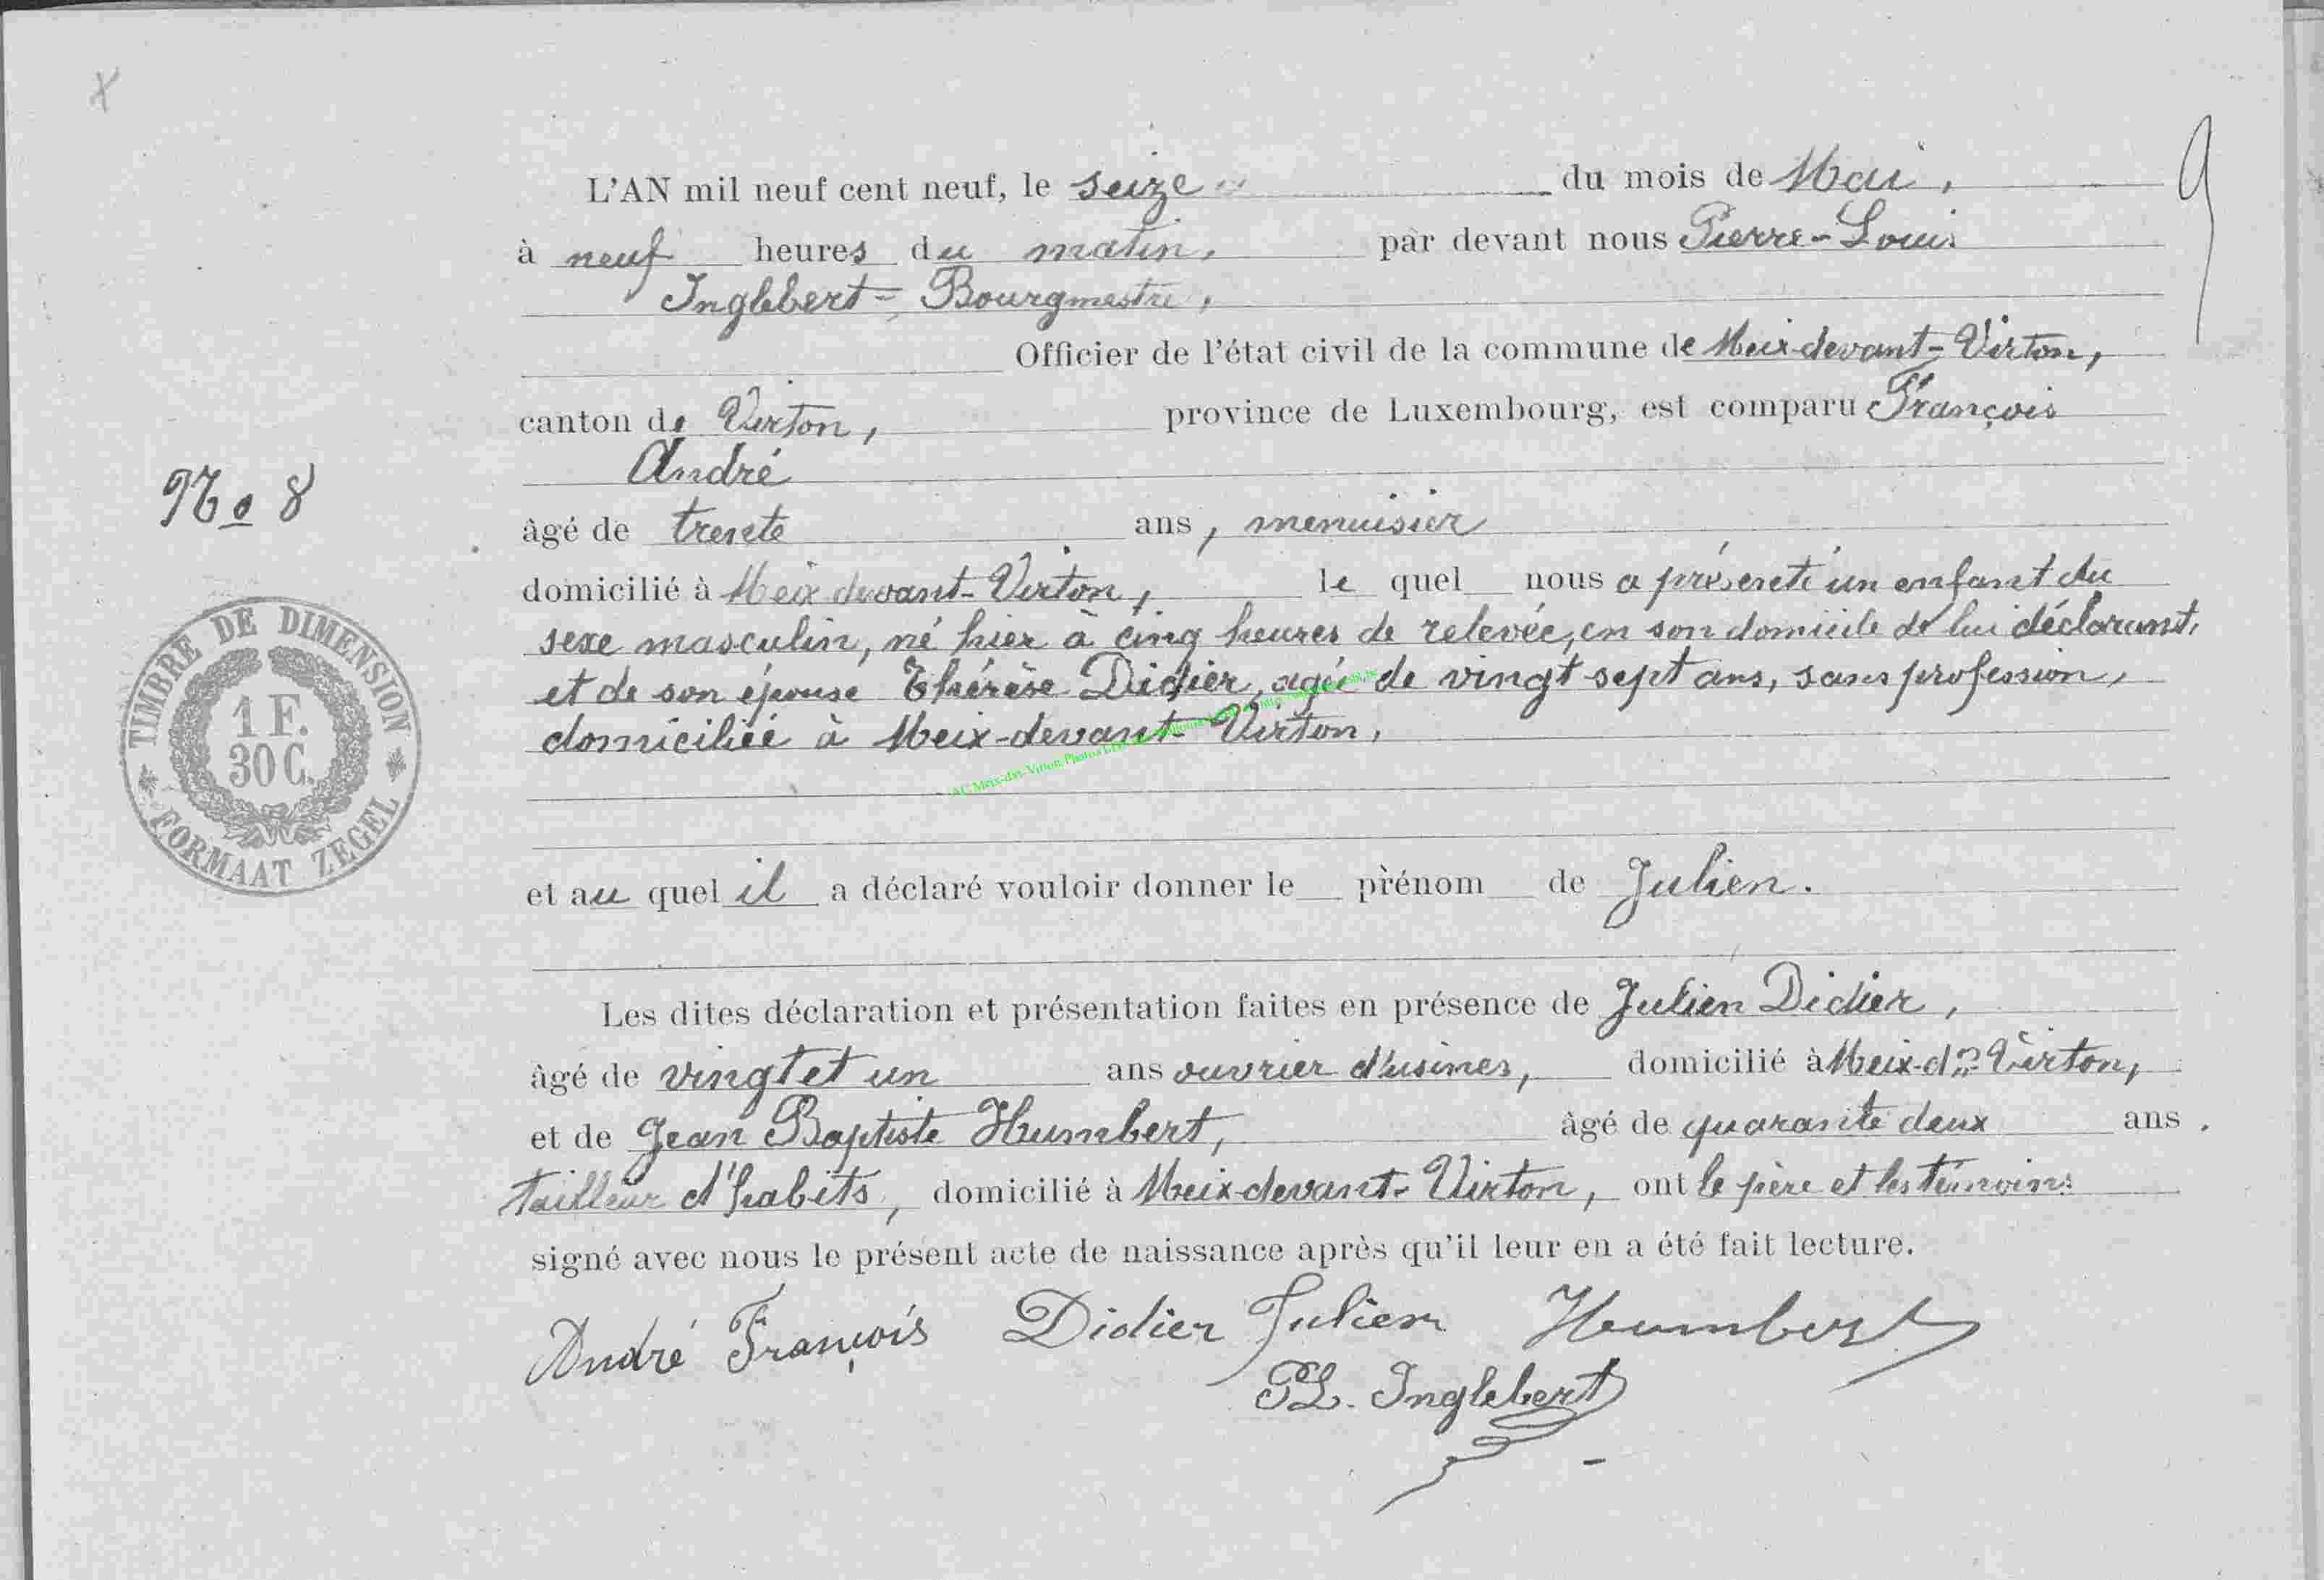 9
L'AN mil neuf cent neuf, le seize du mois de Mai,
à neuf heures du matin, par devant nous Pierre-Louis
Inglebert - Bourgmestre,
Officier de l'état civil de la commune de Meix-devant-Virton,
canton de Virton, province de Luxembourg, est comparu François
André
No 8
âgé de trente ans, menuisier
domicilié à Meix devant-Virton, le quel nous a présenté un enfant du
sexe masculin, né hier à cinq heures de relevée, en son domicile de lui déclarant,
et de son épouse Thérèse Didier, agée de vingt sept ans, sans profession,
domiciliée à Meix-devant-Virton,
TIMBRE DE DIMENSION
1 F.
30 C.
FORMAAT ZEGEL
AC Meix-dvt-Virton
et au quel il a déclaré vouloir donner le prénom de Julien.
Les dites déclaration et présentation faites en présence de Julien Didier,
âgé de vingt et un ans ouvrier d'usines, domicilié à Meix-dt Virton,
et de Jean Baptiste Humbert, âgé de quarante deux ans.
tailleur d'habits, domicilié à Meix-devant-Virton, ont le père et les témoins
signé avec nous le présent acte de naissance après qu'il leur en a été fait lecture.
André François Didier Julien Humbert
PL. Inglebert